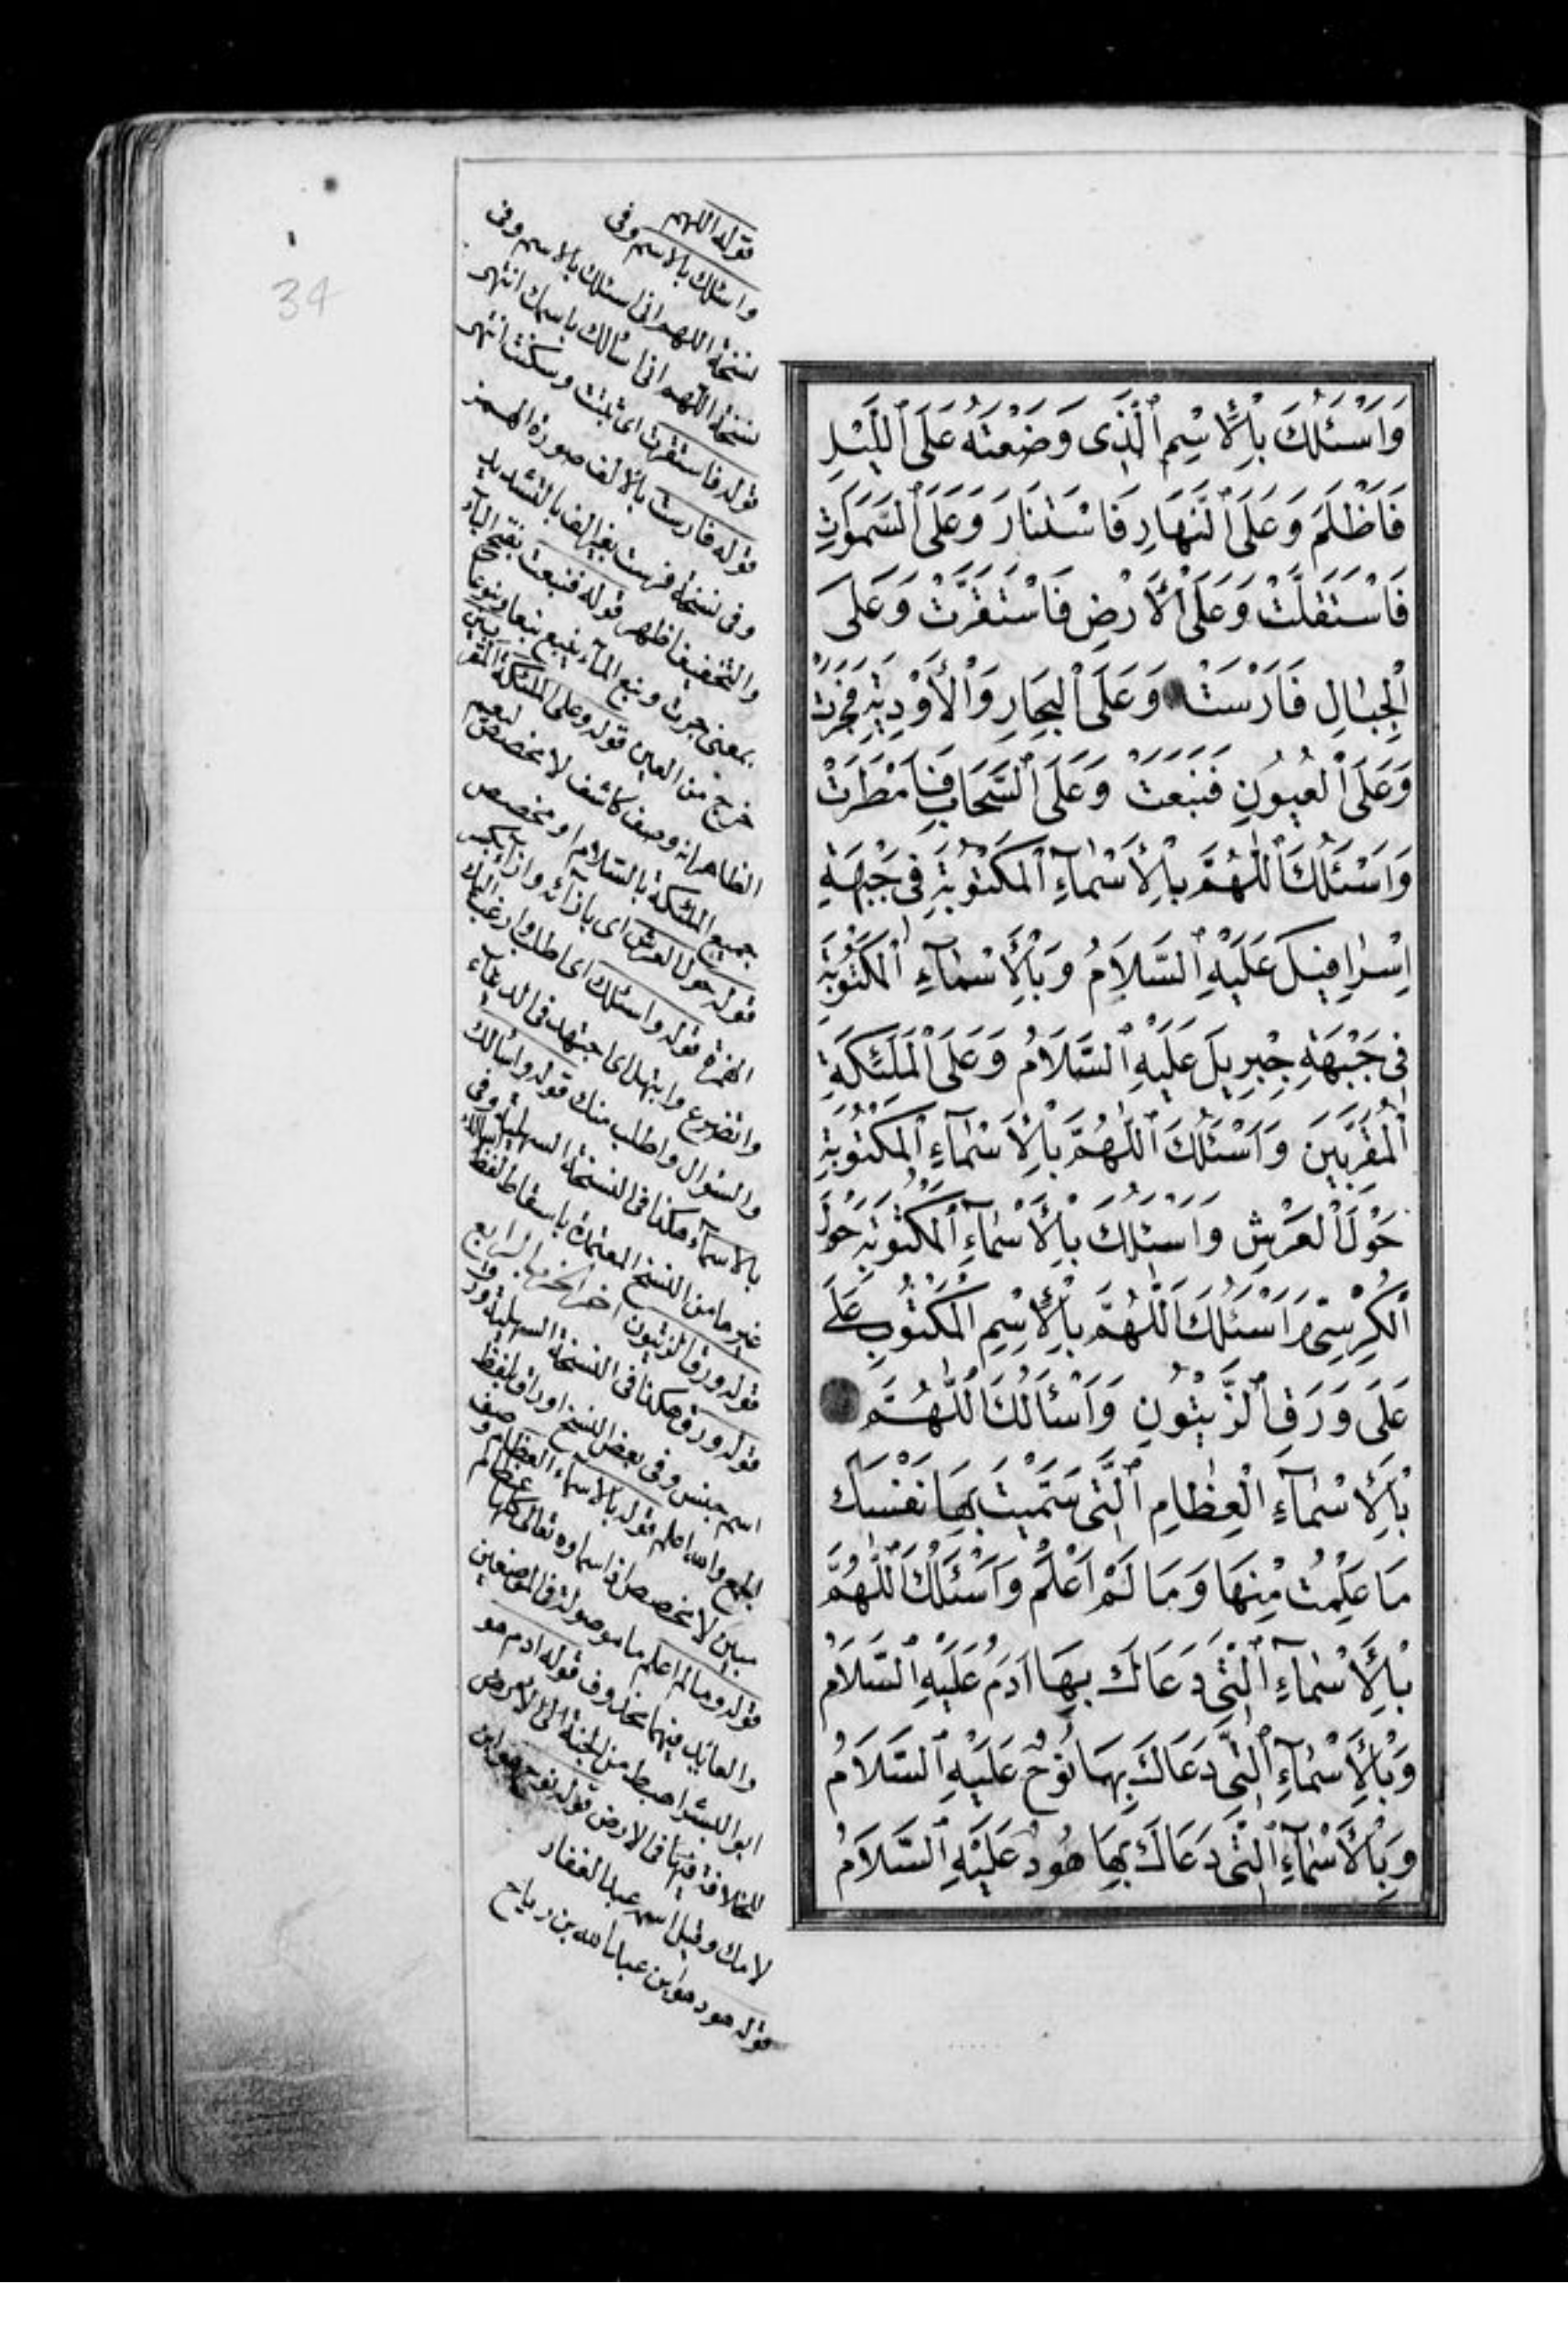 وَاَسْئَلُكَ بِالْأِسْمِ الَّذِى وَضَعْتَهُ عَلَى الَّيْلِ
فَاَظْلَمَ وَعَلَى النَّهَارِ فَاسْتَنَارَ وَعَلَى السَّمٰوَاتِ
فَاسْتَقَلَّتْ وَعَلَى الْأَرْضِ فَاسْتَقَرَّتْ وَعَلَى
الْجِبَالِ فَارْسَتْ وَعَلَى الْبِحَارِ وَالْأَوْدِيَةِ فَجَرَتْ
وَعَلَى الْعُيُونِ فَنَبَعَتْ وَعَلَى السَّحَابِ فَاَمْطَرَتْ
وَاَسْئَلُكَ اللّٰهُمَّ بِالْأَسْمَآءِ الْمَكْتُوبَةِ فِى جَبْهَةِ
اِسْرَافِيلَ عَلَيْهِ السَّلَامُ وَبِالْأَسْمَآءِ الْمَكْتُوبَةِ
فِى جَبْهَةِ جِبْرِيلَ عَلَيْهِ السَّلَامُ وَعَلَى الْمَلٰئِكَةِ
الْمُقَرَّبِينَ وَاَسْئَلُكَ اللّٰهُمَّ بِالْأَسْمَآءِ الْمَكْتُوبَةِ
حَوْلَ الْعَرْشِ وَاَسْئَلُكَ بِالْأَسْمَآءِ الْمَكْتُوبَةِ حَوْلَ
الْكُرْسِىِّ وَاَسْئَلُكَ اللّٰهُمَّ بِالْأِسْمِ الْمَكْتُوبِ عَلَى
عَلَى وَرَقِ الزَّيْتُونِ وَاَسْئَالُكَ اللّٰهُمَّ
بِالْأَسْمَآءِ الْعِظَامِ الَّتِى سَمَّيْتَ بِهَا نَفْسَكَ
مَا عَلِمْتُ مِنْهَا وَمَا لَمْ اَعْلَمْ وَاَسْئَلُكَ اللّٰهُمَّ
بِالْأَسْمَآءِ الَّتِى دَعَاكَ بِهَا اٰدَمُ عَلَيْهِ السَّلَامُ
وَبِالْأَسْمَآءِ الَّتِى دَعَاكَ بِهَا نُوحٌ عَلَيْهِ السَّلَامُ
وَبِالْأَسْمَآءِ الَّتِى دَعَاكَ بِهَا هُودٌ عَلَيْهِ السَّلَامُ
قوله اللهم
واسئلك بالاسم وفى
نسخة اللهم انى اسئلك بالاسم وفى
نسخة اللهم انى اسألك باسمك انتهى
قوله فاستقرت اى ثبتت وسكنت انتهى
قوله فارست بالالف صورة الهمز
وفى نسخة فرست بغير الف بالتشديد
والتخفيف اظهر قوله فنبعت بفتح الباء
بمعنى جرت ونبع الماء ينبع نبعا ونبوعا
خرج من العين قوله وعلى الملئكة المقربين
الظاهر انه وصف كاشف لا مخصص ليعم
جميع الملئكة بالسلام او مخصص
قوله حول العرش اى بازائه وازاء بكسر
الهمزة قوله واسئلك اى اطلب وارغب اليك
واتضرع وابتهل اى اجتهد فى الدعاء
والسؤال واطلب منك قوله واسالك
بالاسماء هكذا فى النسخة السهلية وفى
غيرها من النسخ المعتمدة باسقاط لفظ
قوله ورق الزيتون
قوله ورق هكذا فى النسخة السهلية
اسم جنس وفى بعض النسخ اوراق بلفظ
الجمع والله اعلم قوله بالاسماء العظام وصف
مبين لا مخصص اذ اسماؤه تعالى كلها عظام
قوله وما لم اعلم ما موصولة فى الموضعين
والعايد فيهما محذوف قوله ادم هو
ابو البشر اهبط من الجنة الى الارض
للخلافة فيها فى الارض قوله نوح هو ابن
لامك وقيل اسمه عبد الغفار
قوله هود هو ابن عبد الله بن رياح
34